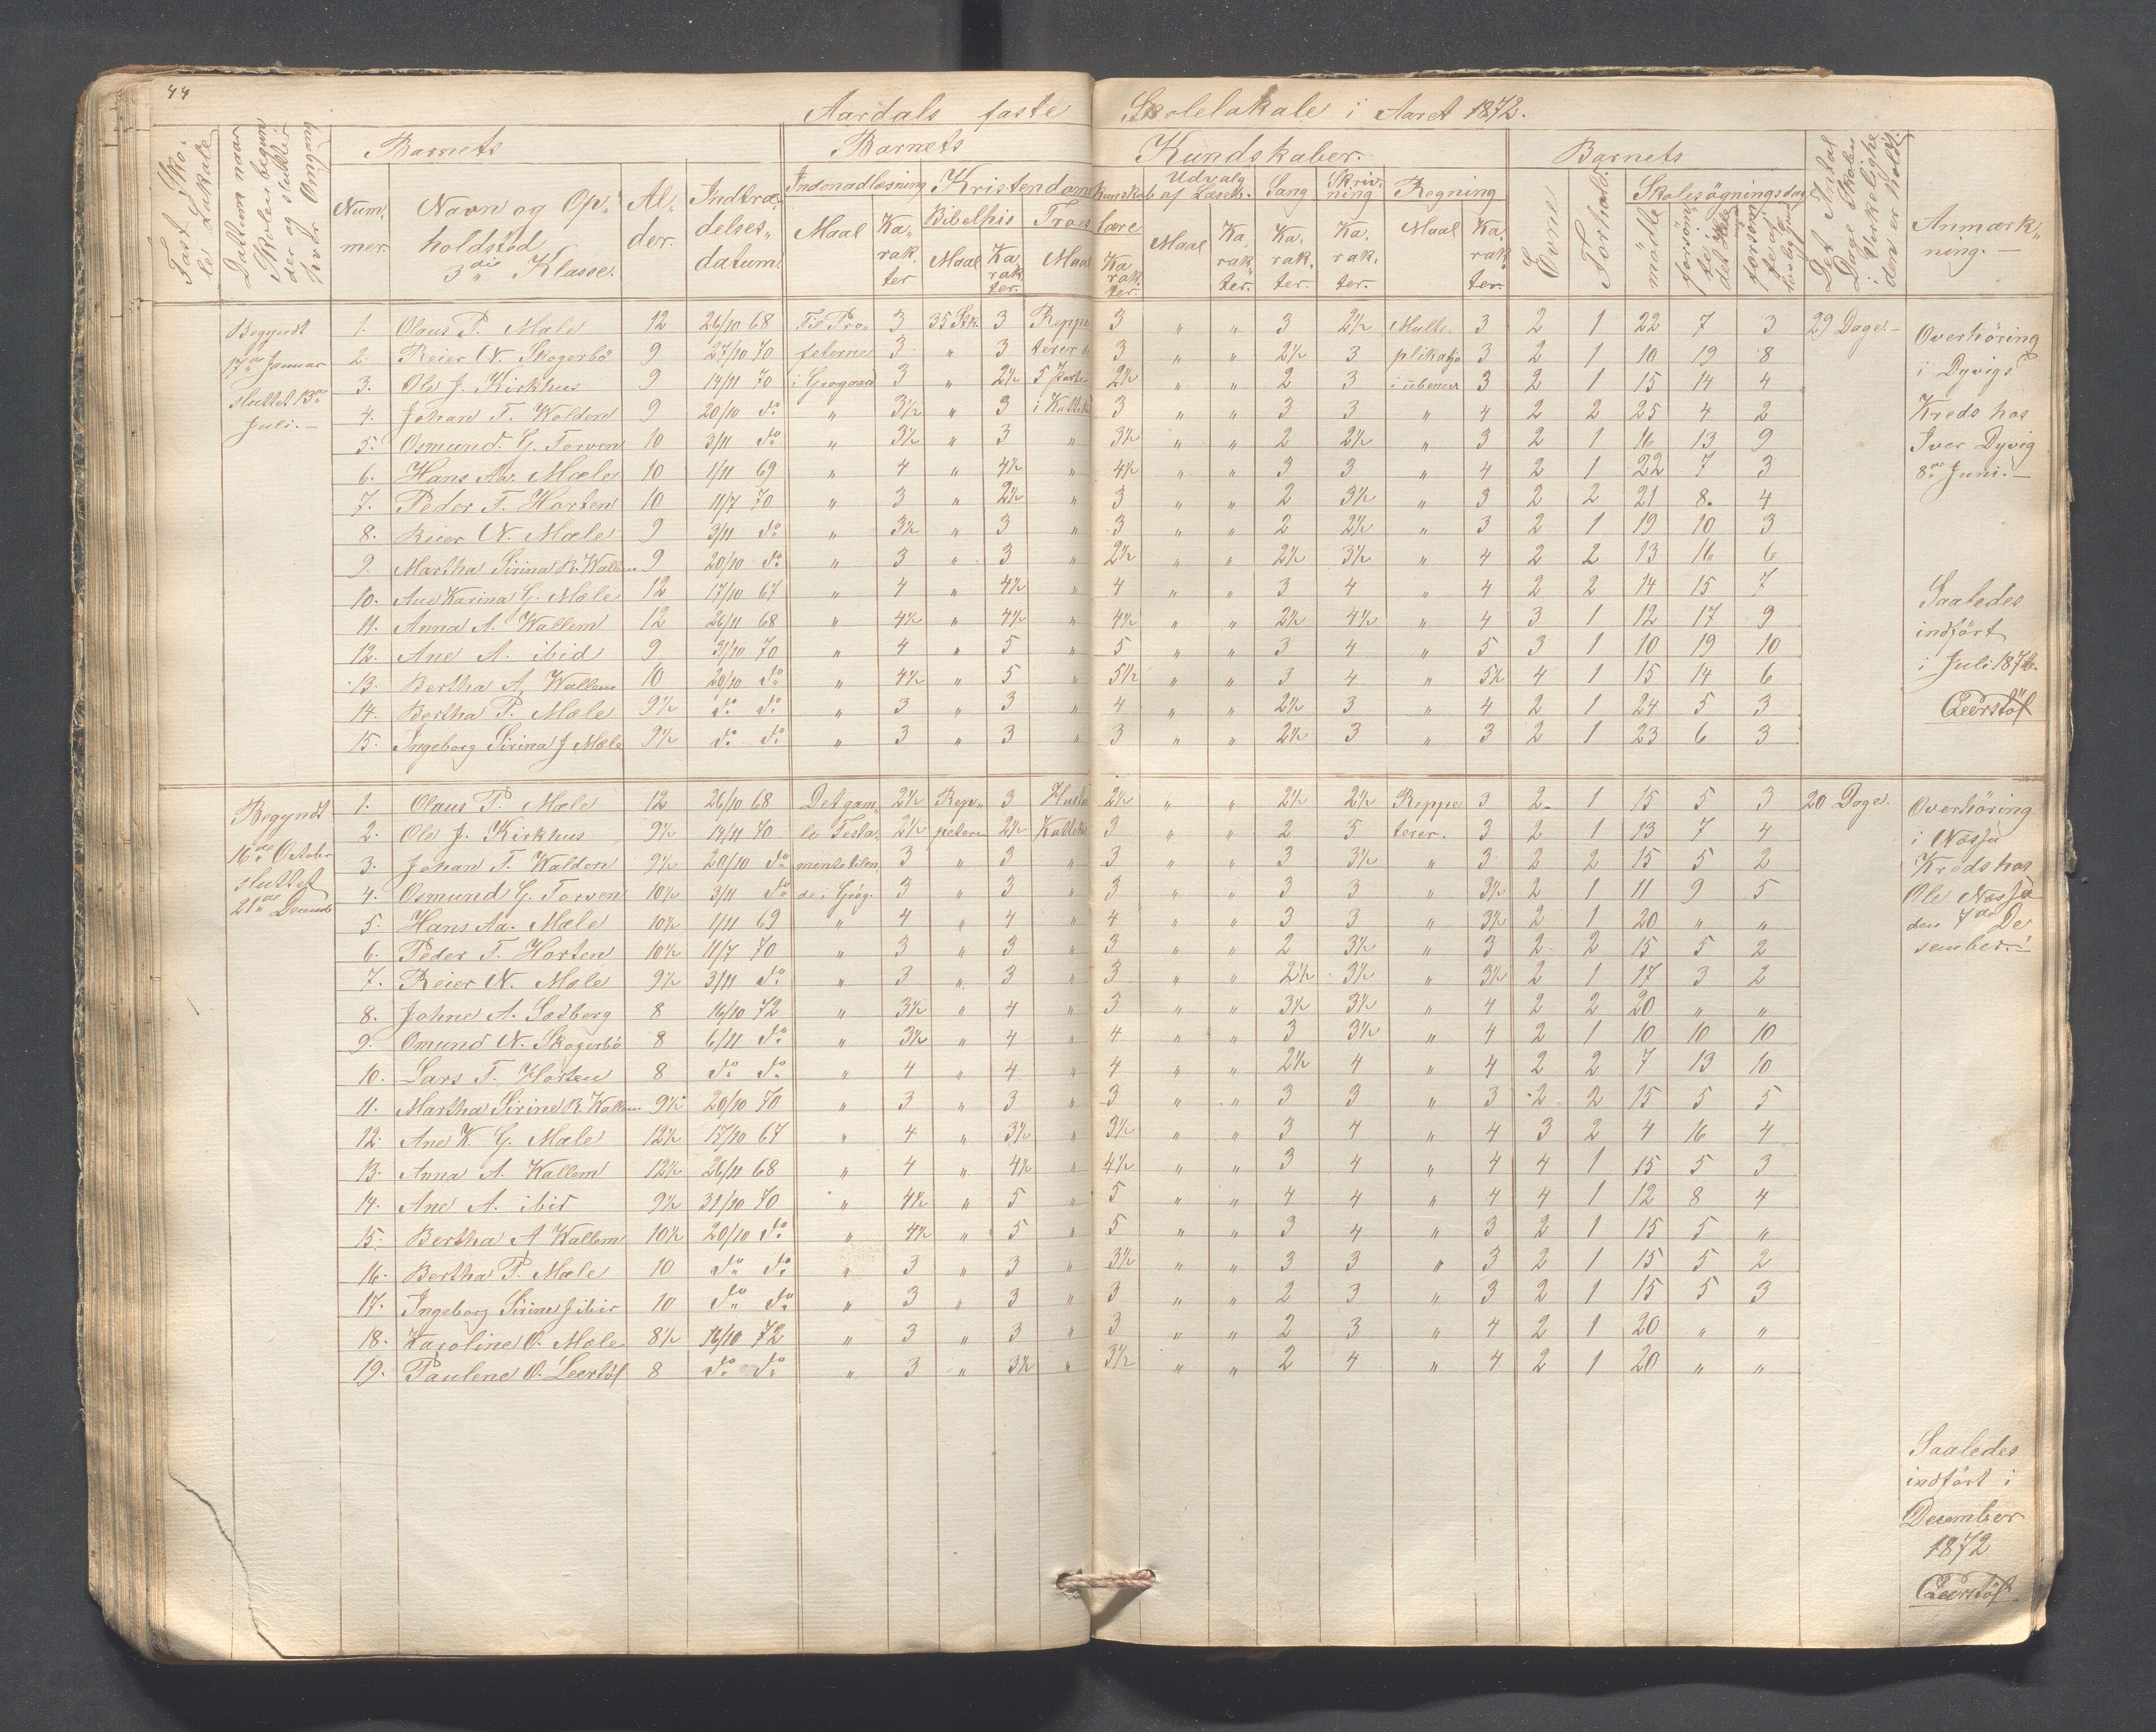 44
Aardals faste Skolelokale i Aaret 1872.
Fast Skolelokale
Dattum naar Skolen begynder og slutter hver Omgang
Barnets
Barnets Kundskaber.
Barnets
Det Antal Dage Skolen i Virkeligheden er holdt.
Anmærkning.
Nummer. Navn og Opholdsted 3die Klasse. Alder. Indtrædelsesdatum.
Indenadlæsning Maal Karakter
Kristendomskundskab Bibelhis Maal Karakter. Troeslære Maal Karakter.
Udvalg af Læseb. Maal Karakter.
Sang Karakter. Skrivning Karakter. Regning Maal Karakter.
Evne Forhold. Skolesögningsdag mödte
Begyndt 17de Januar sluttet 13de Juli.
1. Olaus P. Mæle 12 26/10 68 Til Pro- 3 35 Stk. 3 Reppe 3 " " 3 2½ Multi- 3 2 1 22 7 3 29 Dage.
2. Reier N. Skogerbö 9 27/10 70 feterne 3 " 3 terer 3 " " 2½ 3 plikatjo 3 2 1 10 19 8
3. Ole J. Kirkhus 9 14/11 70 i Grøgaard 3 " 2½ 5 Parter 2½ " " 2 3 3 2 1 15 14 4
4. Johan T. Wolden 9 20/10 do " 3½ " 3 3 " " 3 3 " 4 2 2 25 4 2
5. Osmund G. Torven 10 3/11 do " 3½ " 3 " 3½ " " 2 2½ " 3 2 1 16 13 9
6. Hans Aa. Mæle 10 1/11 69 " 4 " 4½ " 4½ " " 3 3 " 4 2 1 22 7 3
7. Peder T. Horten 10 11/7 70 " 3 " 2½ " 3 " " 2 3½ " 3 2 2 21 8. 4
8. Reier N. Mæle 9 3/11 do " 3½ " 3 " 3 " " 2 2½ " 3 2 1 19 10 3
9. Martha Sirina R. Wallem 9 20/10 do " 3 " 3 " 2½ " " 2½ 3½ " 4 2 2 13 16 6
10. Ane Karina G. Mæle 12 17/10 67 " 4 " 4½ " 4 " " 3 4 " 4 2 2 14 15 7
11. Anna A. Wallem 12 26/11 68 " 4½ " 4½ " 4½ " " 2½ 4½ " 4 3 1 12 17 9
12. Ane A. ibid 9 31/10 70 " 4 " 5 " 5 " " 3 4 " 5 3 1 10 19 10
13. Bertha A. Wallem 10 20/10 do " 4½ " 5 " 5½ " " 3 4 " 5½ 4 1 15 14 6
14. Bertha P. Mæle 9½ do do " 3 " 3 " 4 " " 2½ 3 " 4 2 1 24 5 3
15. Ingeborg Sirina J Mæle 9½ do do " 3 " 3 " 3 " " 2½ 3 " 3 2 1 23 6 3
Overhöring
i Dyvigs
Kreds hos
Iver Dyvig
8de Juni.
Saaledes
indfört
i Juli 1872.
Leerstöl
Begyndt 16de Octobr sluttet 21de Decemb
1. Olaus P. Mæle 12 26/10 68 Det gam- 2½ Rep- 3 2½ " " 2½ 2½ Reppe 3 2 1 15 5 3 20 Dage.
2. Ole J. Kirkhus 9½ 14/11 70 le Testa- 2½ peteren 2½ 3 " " 2 3 terer. 3 2 1 13 7 4
3. Johan T. Walden 9½ 20/10 do 3 " 3 " 3 " " 3 3½ " 3 2 2 15 5 2
4. Osmund G. Torven 10½ 3/11 do de i Grøg. 3 " 3 " 3 " " 3 3 " 3½ 2 1 11 9 5
5. Hans Aa. Mæle 10½ 1/11 69 " 4 " 4 " 4 " " 3 3 " 3½ 2 1 20 " "
6. Peder T. Horten 10½ 11/7 70 " 3 " 3 " 3 " " 2 3½ " 3 2 2 15 5 2
7. Reier N. Mæle 9½ 3/11 do " 3 " 3 " 3 " " 2½ 3½ " 3½ 2 1 17 3 2
8. Johne A. Sodberg 8 16/10 72 " 3½ " 4 " 3 " " 3½ 3½ " 4 2 2 20 " "
9. Omund N. Skogerbö 8 6/11 do " 3½ " 4 " 4 " " 3 3½ " 4 2 1 10 10 10
10. Lars T. Horten 8 do do " 4 " 4 " 4 " " 2½ 4 " 4 2 2 7 13 10
11. Martha Sirine R. Wallem 9½ 20/10 70 " 3 " 3 " 3 " " 3 3 " 3 2 2 15 5 5
12. Ane K. G. Mæle 12½ 17/10 67 " 4 " 3½ " 3½ " " 3 4 " 4 3 2 4 16 4
13. Anna A. Wallem 12½ 26/11 68 " 4 " 4½ " 4½ " " 3 4 " 4 4 1 15 5 3
14. Ane A. ibid 9½ 31/10 70 " 4½ " 5 " 5 " " 4 4 " 4 4 1 12 8 4
15. Bertha A Wallem 10½ 20/10 do " 4½ " 5 " 5 " " 3 4 " 3 2 1 15 5 "
16. Bertha P. Mæle 10 do do " 3 " 3 " 3½ " " 3 3 " 3 2 1 15 5 2
17. Ingeborg Sirine J ibid 10 do do " 3 " 3 " 3 " " 2 3 " 3 2 1 15 5 3
18. Karoline O. Mæle 8½ 16/10 72 " 3 " 3 " 3 " " 2 3 " 4 2 1 20 " "
19. Paulene O. Leertöl 8 do do " 3 " 3½ " 3½ " " 2 4 " 4 2 1 20 " "
Overhöring
i Næssa
Kreds hos
Ole Næssa
den 7de De
sember.
Saaledes
indfört i
December
1872
Leerstöl